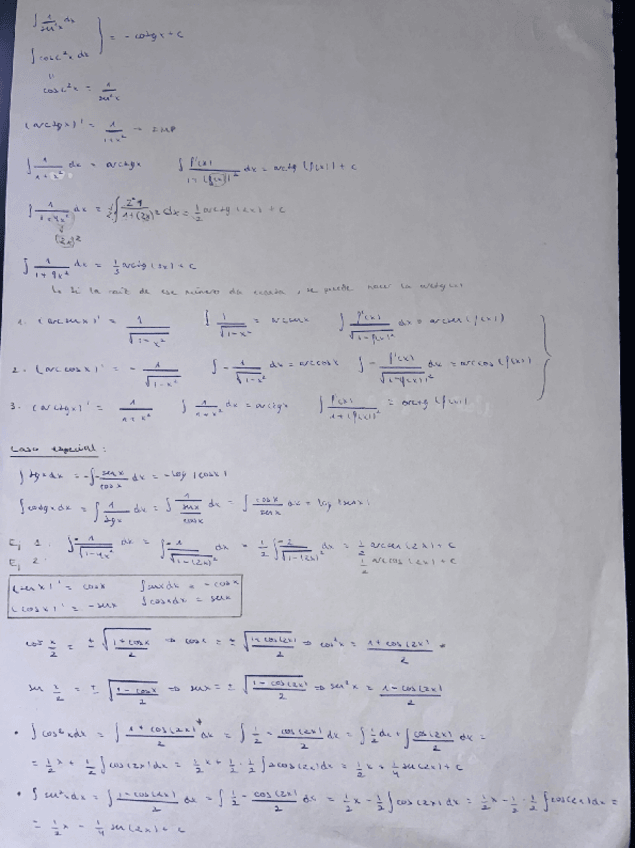 ∫ 1/sen²x dx
∫ cosc²x dx } = - cotgx + c
cosc²x = 1/sen²x
(arctgx)' = 1/(1+x²)
∫ 1/(1+x²) dx = arctgx    ∫ f'(x)/(1+(f(x))²) dx = arctg (f(x)) + c
∫ 1/(1+4x²) dx = 1/2 ∫ 2·1/(1+(2x)²) dx = 1/2 arctg (2x) + c
(2x)²
∫ 1/(1+9x²) dx = 1/3 arctg (3x) + c
↳ Si la raíz de ese número da exacta, se puede hacer la
1. (arcsenx)' = 1/√(1-x²)    ∫ 1/√(1-x²) = arcsenx    ∫ f'(x)/√(1-f(x)²) dx = arcsen (f(x))
2. (arccosx)' = - 1/√(1-x²)    ∫ - 1/√(1-x²) dx = arccosx    ∫ - f'(x)/√(1-f(x))² dx = arccos (f(x))
3. (arctgx)' = 1/(1+x²)    ∫ 1/(1+x²) dx = arctgx    ∫ f'(x)/(1+(f(x))²) = arctg (f(x))
Caso especial:
∫ tgx dx = -∫ - senx/cosx dx = - log |cosx|
∫ cotgx dx = ∫ 1/tgx dx = ∫ 1/(senx/cosx) dx = ∫ cosx/senx dx = log |senx|
Ej 1. ∫ - 1/√(1-4x²) dx = ∫ - 1/√(1-(2x)²) dx = 1/2 ∫ - 2/√(1-(2x)²) dx = 1/2 arcsen (2x) + c
Ej 2. 1/2 arccos (2x) + c
(senx)' = cosx    ∫ senx dx = - cosx
(cosx)' = - senx    ∫ cosx dx = senx
cos x/2 = ± √((1+cosx)/2) ⇒ cosx = ± √((1+cos(2x))/2) ⇒ cos²x = (1+cos(2x))/2 *
sen x/2 = ± √((1-cosx)/2) ⇒ senx = ± √((1-cos(2x))/2) ⇒ sen²x = (1-cos(2x))/2
• ∫ cos²x dx = ∫ (1+cos(2x))/2 * dx = ∫ 1/2 + cos(2x)/2 dx = ∫ 1/2 dx + ∫ cos(2x)/2 dx =
= 1/2 x + 1/2 ∫ cos(2x) dx = 1/2 x + 1/2 · 1/2 ∫ 2cos(2x) dx = 1/2 x + 1/4 sen(2x) + c
• ∫ sen²x dx = ∫ (1-cos(2x))/2 dx = ∫ 1/2 - cos(2x)/2 dx = 1/2 x - 1/2 ∫ cos(2x) dx = 1/2 x - 1/2 · 1/2 ∫ 2cos(2x) dx =
= 1/2 x - 1/4 sen(2x) + c